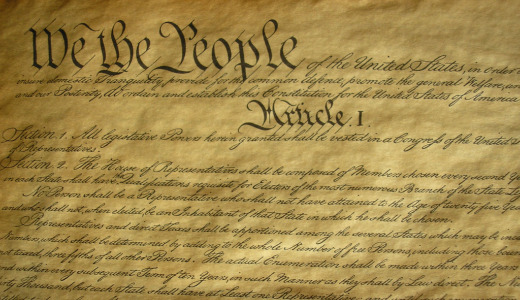 We the People of the United States, in order
insure domestic Tranquility, provide for the common defence, promote the general Welfare, and
and our Posterity, do ordain and establish this Constitution for the United States of America
Article. I.
Section 1. All legislative Powers herein granted shall be vested in a Congress of the United S
of Representatives.
Section 2. The House of Representatives shall be composed of Members chosen every second Yea
in each State shall have Qualifications requisite for Electors of the most numerous Branch of the State L
No Person shall be a Representative who shall not have attained to the Age of twenty five Years
and who shall not, when elected, be an Inhabitant of that State in which he shall be chosen.
Representatives and direct Taxes shall be apportioned among the several States which may be inclu
Numbers, which shall be determined by adding to the whole Number of free Persons, including those boun
not taxed, three fifths of all other Persons. The actual Enumeration shall be made within three Years
and within every subsequent Term of ten Years, in such Manner as they shall by Law direct. The N
ty Thousand, but each State shall have at Least one Representative